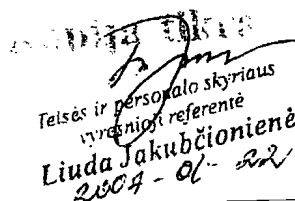 Teisės ir personalo skyriaus
vyresnioji referentė
Liuda Jakubčionienė
2004-01-22